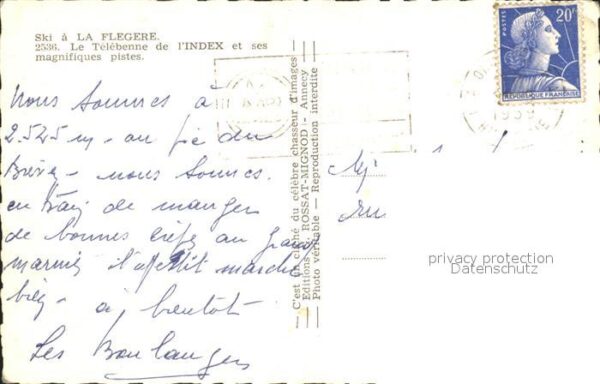 Ski à LA FLEGERE.
2536. Le Télébenne de l'INDEX et ses
magnifiques pistes.
Nous sommes à
2.525 m - au pic du
Brév - nous sommes
en train de manger
de bonnes crêpes au grand
marnier l'appétit marche
bien - à bientôt
Les Boulanger
— C'est un cliché du célèbre chasseur d'images —
Editions M. ROSSAT-MIGNOD - Annecy
Photo véritable — Reproduction interdite
POSTES
20F
REPUBLIQUE FRANÇAISE
1959
privacy protection
Datenschutz